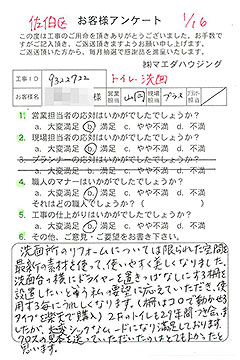 佐伯区 お客様アンケート 1/16
この度は工事のご用命を頂きありがとうございました。お手数で
すがご記入頂き、ご返送頂きますようお願い申し上げます。
ご返送頂いた方から、毎月抽選で感謝品を進呈いたします。
㈱マエダハウジング
工事ID 93222922 トイレ・洗面
お客様名 様 営業担当 山岡 現場担当 プラス
1. 営業担当者の応対はいかがでしたでしょうか?
a. 大変満足 b. 満足 c. やや不満 d. 不満
2. 現場担当者の応対はいかがでしたでしょうか?
a. 大変満足 b. 満足 c. やや不満 d. 不満
3. プランナーの応対はいかがでしたでしょうか?
a. 大変満足 b. 満足 c. やや不満 d. 不満
4. 職人のマナーはいかがでしたでしょうか?
a. 大変満足 b. 満足 c. やや不満 d. 不満
それはどの職人でしょうか?( )
5. 工事の仕上がりはいかがでしたでしょうか?
a. 大変満足 b. 満足 c. やや不満 d. 不満
6. その他、ご意見・ご要望をお書き下さい。
洗面所のリフォームについては限られた空間を
最新の素材を使って、使いやすく美しくなりました。
洗面台の横にドライヤーを置きっぱなしにする棚を
設置したいと言う私の要望に応えていただき、使
用する毎にうれしくなります。(棚はコロで動かせる
タイプを楽天で購入) 2Fのトイレも2年間でき
ましたが、大変シックなムードになり満足しております。
クロスの見本を送っていただいたのはとてもよかったと
思います。